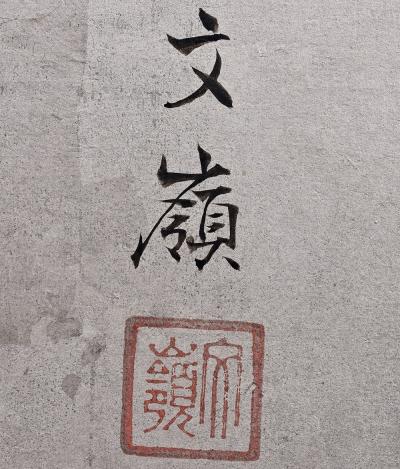 文嶺
文嶺